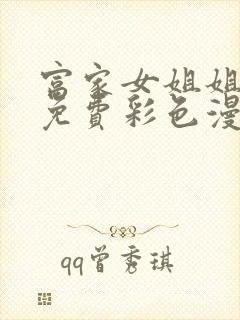 富家女姐姐
免费彩色漫
qq曾秀琪